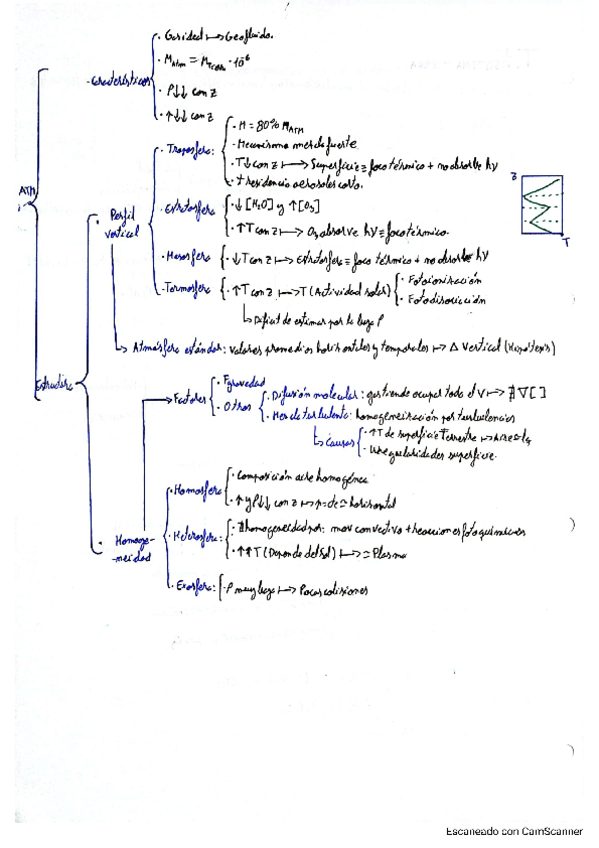 · Gaseidad ↦ Geofluido.
· M_Atm = M_Tierra · 10⁻⁶
Características
· P↓↓ con z
· ↑↓↓ con z
ATM
· M = 80% M_ATM
· Mecanismo mezcla fuerte
· Troposfera:
· T↓ con z ↦ Superficie ≡ foco térmico + no absorbe hγ
· t residencia aerosoles corta.
z
T
Perfil vertical
· Estratosfera
· ↓[H₂O] y ↑[O₃]
· ↑T con z ↦ O₃ absorve hγ ≡ foco térmico.
· Mesosfera
· ↓T con z ↦ Estratosfera ≡ foco térmico + no absorbe hγ
· Termosfera
· ↑T con z ↦ T (Actividad solar)
· Fotoionización
· Fotodisociación
↳ Dificil de estimar por la baja P
↳ Atmósfera estándar: valores promedios horizontales y temporales ↦ Δ Vertical (Hipótesis)
Estructura
Factores
· F gravedad
· Otros
· Difusión molecular: gas tiende ocupar todo el V ↦ ∄ ∇[ ]
· Mezcla turbulenta: homogeneización por turbulencias
↳ causas
· ↑T de superficie Terrestre ↦
· Irregularidades superficie.
· Homosfera
· Composición aire homogénea
· ↑ y P↓↓ con z ↦ horizontal
· Homoge-
-neidad
· Heterosfera:
· ∄ homogeneidad por: mov convectivo + reacciones fotoquímicas
· ↑↑T (Depende del Sol) ↦ ≃ Plasma
· Exosfera:
· P muy baja ↦ Pocas colisiones
Escaneado con CamScanner